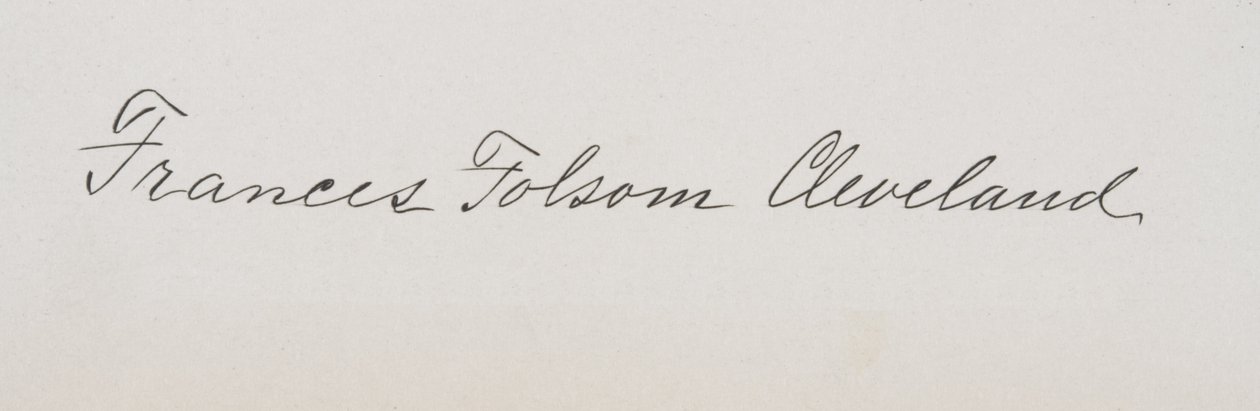 Frances Folsom Cleveland